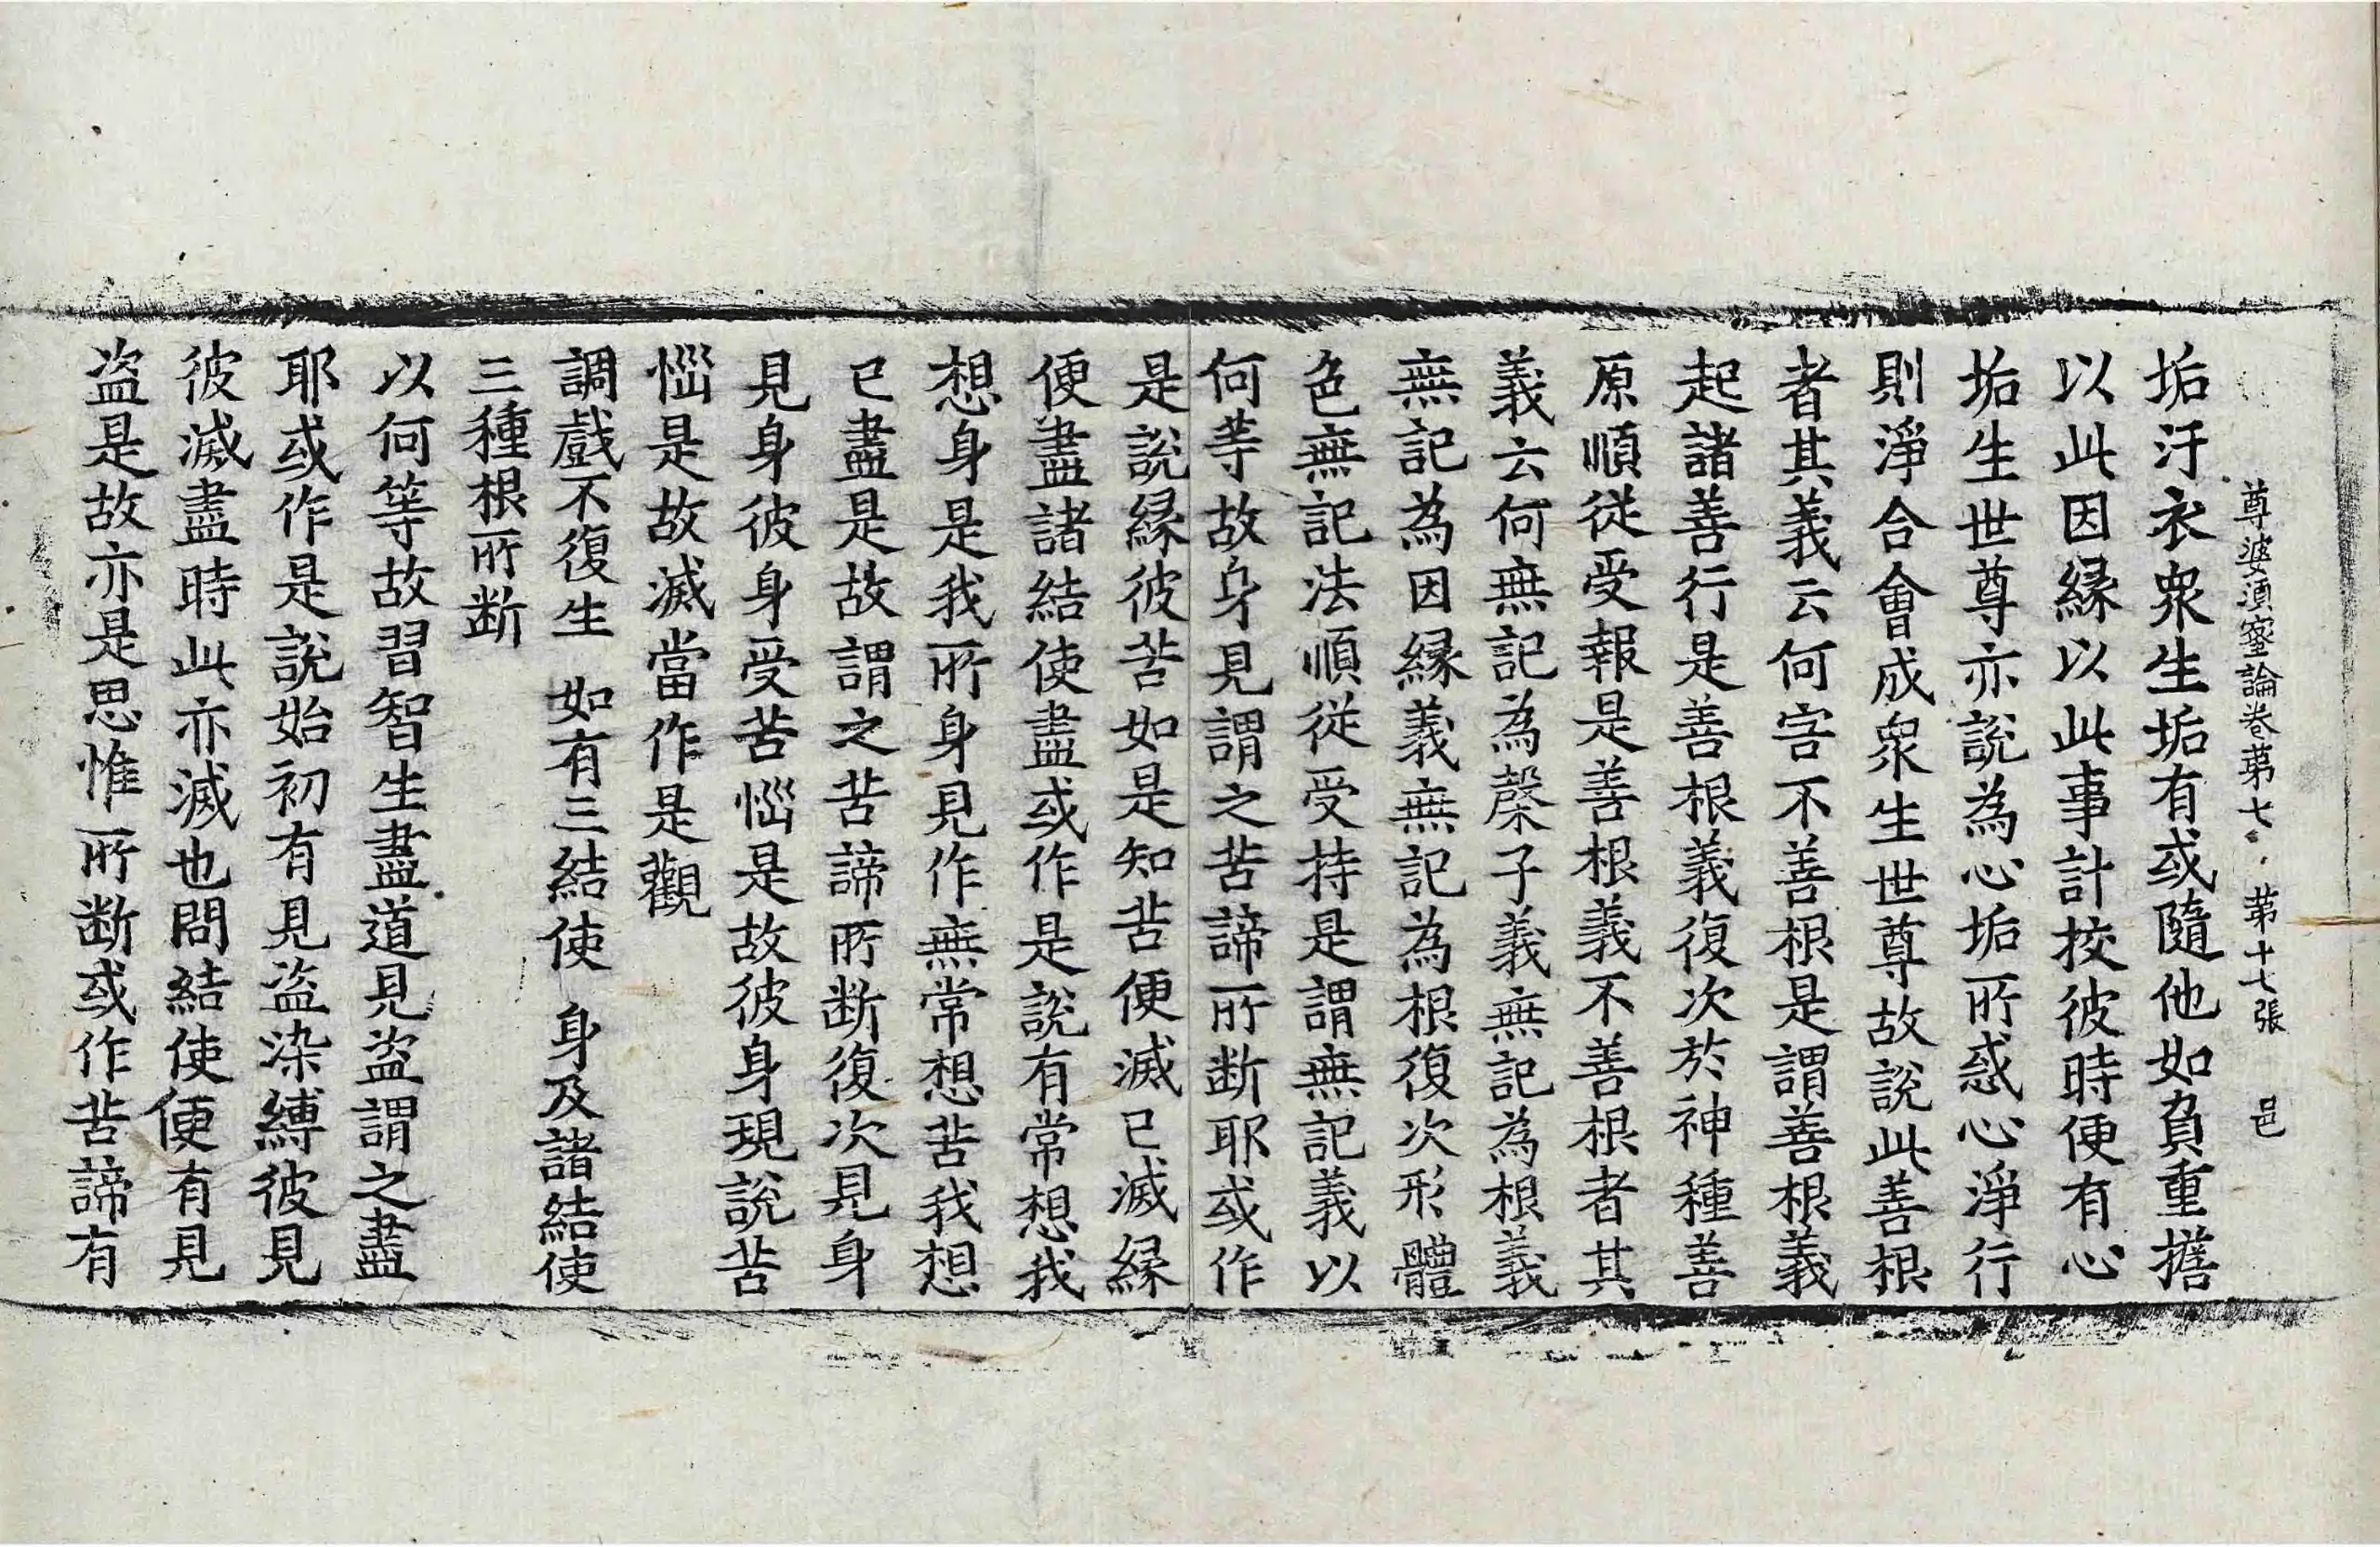 尊婆須蜜論卷第七 第十七張 邑
垢汙衣衆生垢有或隨他如負重擔
以此因縁以此事計挍彼時便有心
垢生世尊亦說為心垢所惑心淨行
則淨合會成衆生世尊故說此善根
者其義云何字不善根是謂善根義
起諸善行是善根義復次於神種善
原順從受報是善根義不善根者其
義云何無記為漀子義無記為根義
無記為因縁義無記為根復次形體
色無記法順從受持是謂無記義以
何等故身見謂之苦諦所断耶或作
是說縁彼苦如是知苦便滅已滅縁
便盡諸結使盡或作是說有常想我
想身是我所身見作無常想苦我想
已盡是故謂之苦諦所断復次見身
見身彼身受苦惱是故彼身現說苦
惱是故滅當作是觀
調戲不復生 如有三結使 身及諸結使
三種根所断
以何等故習智生盡道見盗謂之盡
耶或作是說始初有見盗染縛彼見
彼滅盡時此亦滅也問結使便有見
盗是故亦是思惟所断或作苦諦有